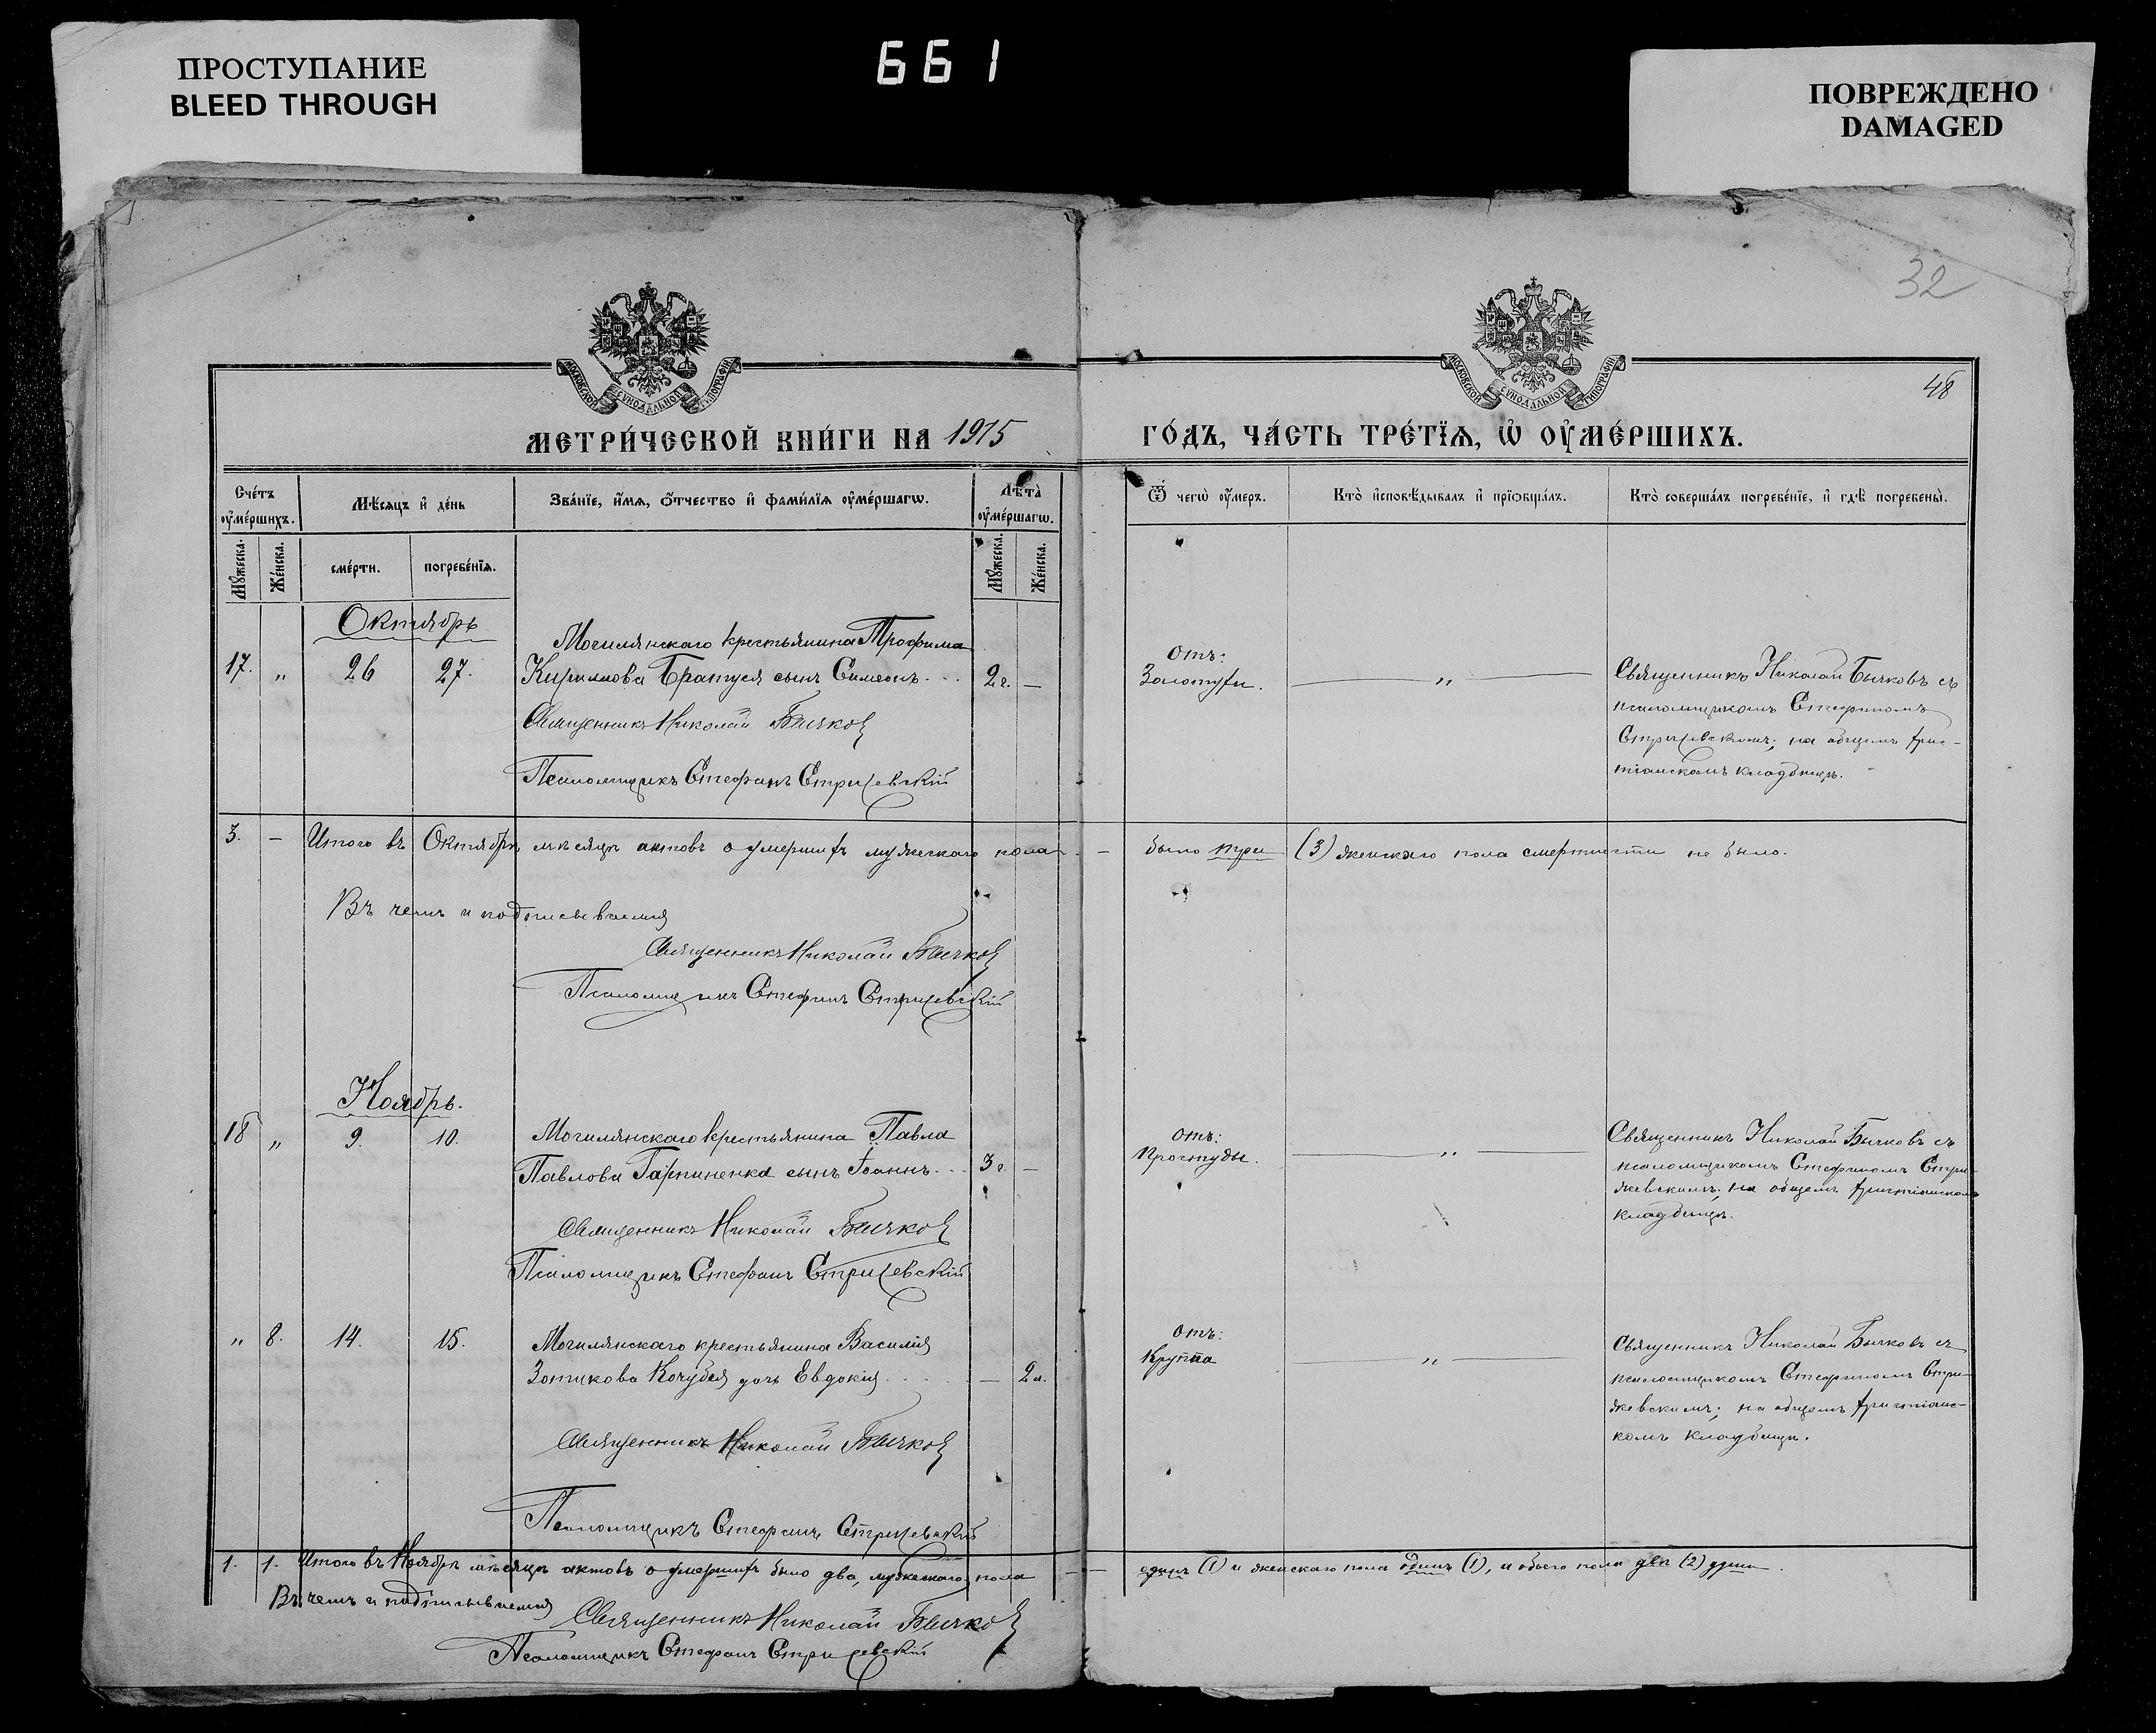 ПРОСТУПАНИЕ
BLEED THROUGH
661
ПОВРЕЖДЕНО
DAMAGED
32
48
МОСКОВСКОЙ СѴНОДАЛЬНОЙ ТИПОГРАФІИ
МОСКОВСКОЙ СѴНОДАЛЬНОЙ ТИПОГРАФІИ
МЕТРИ́ЧЕСКОЙ КНИ́ГИ НА 1915
ГО́ДЪ, ЧА́СТЬ ТРЕ́ТЇѦ, Ѡ҆ ОУ҆МЕ́РШИХЪ.
Сче́тъ оу҆ме́ршихъ.
Мѣ́сѧцъ и҆ де́нь
Зва́нїе, и҆́мѧ, ѻ҆́тчество и҆ фами́лїѧ оу҆ме́ршагѡ.
Лѣ́та̀ оу҆ме́ршагѡ.
Ѿ чегѡ̀ оу҆́меръ.
Кто̀ и҆сповѣ́дывалъ и҆ прїѡбща́лъ.
Кто̀ соверша́лъ погребе́нїе, и҆ гдѣ̀ погребены̀.
Мꙋ́жеска. Же́нска.
сме́рти. погребе́нїѧ.
Мꙋ́жеска. Же́нска.
Октябрь
17. „ 26 27.
Могилянскаго крестьянина Трофима
Кириллова Братуся сынъ Симеонъ . . . 2 г. —
Священникъ Николай Бычковъ
Псаломщикъ Стефанъ Стрижевскій
Отъ:
Золотухи.
„
Священникъ Николай Бычковъ съ
псаломщикомъ Стефаномъ
Стрижевскимъ; на общемъ хрис-
тіанскомъ кладбищѣ.
3. — Итого въ Октябрѣ мѣсяцѣ актовъ о умершихъ мужескаго пола — было три (3) женскаго пола смертности не было.
Въ чемъ и подписываемся
Священникъ Николай Бычковъ
Псаломщикъ Стефанъ Стрижевскій
Ноябрь.
18 „ 9. 10.
Могилянскаго крестьянина Павла
Павлова Гарпиненка сынъ Іоаннъ . . . 3 г. —
Священникъ Николай Бычковъ
Псаломщикъ Стефанъ Стрижевскій
Отъ:
Простуды.
„
Священникъ Николай Бычковъ съ
псаломщикомъ Стефаномъ Стри-
жевскимъ; на общемъ христіанскомъ
кладбищѣ.
„ 8. 14. 15.
Могилянскаго крестьянина Василія
Зотикова Кочубея дочь Евдокія . . . . — 2 л.
Священникъ Николай Бычковъ
Псаломщикъ Стефанъ Стрижевскій
Отъ:
Круппа
„
Священникъ Николай Бычковъ съ
псаломщикомъ Стефаномъ Стри-
жевскимъ; на общемъ христіанс-
комъ кладбищѣ.
1. 1. Итого въ Ноябрѣ мѣсяцѣ актовъ о умершихъ было два, мужескаго пола — — одинъ (1) и женскаго пола одинъ (1), а обоего пола двѣ (2) души.
Въ чемъ и подписываемся
Священникъ Николай Бычковъ
Псаломщикъ Стефанъ Стрижевскій